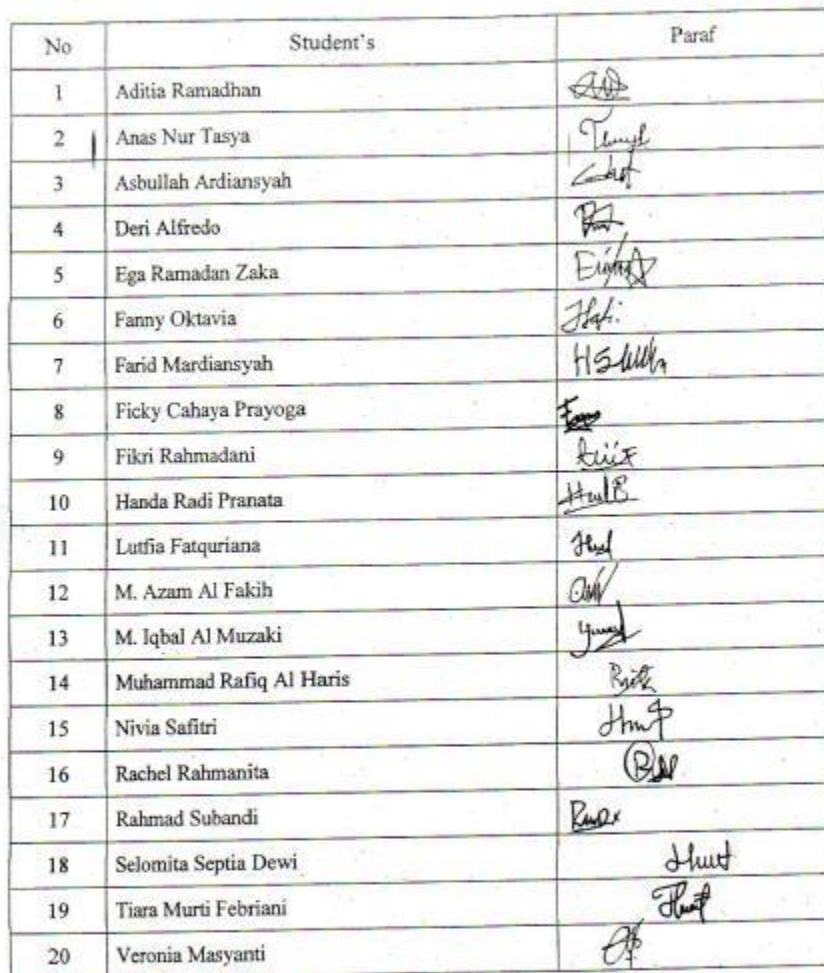 No Student's Paraf
1 Aditia Ramadhan
2 Anas Nur Tasya
3 Asbullah Ardiansyah
4 Deri Alfredo
5 Ega Ramadan Zaka
6 Fanny Oktavia
7 Farid Mardiansyah
8 Ficky Cahaya Prayoga
9 Fikri Rahmadani
10 Handa Radi Pranata
11 Lutfia Fatquriana
12 M. Azam Al Fakih
13 M. Iqbal Al Muzaki
14 Muhammad Rafiq Al Haris
15 Nivia Safitri
16 Rachel Rahmanita
17 Rahmad Subandi
18 Selomita Septia Dewi
19 Tiara Murti Febriani
20 Veronia Masyanti